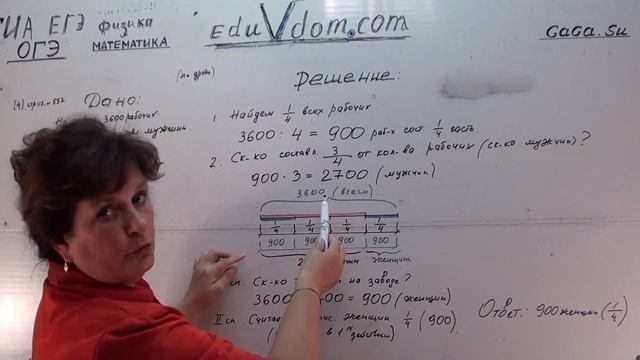 ИА ЕГЭ физика
ОГЭ МАТЕМАТИКА
EduVdom.com
GaGa.su
(на дроби)
Решение:
Дано:
3600 рабочих
мужчин
1. Найдем 1/4 всех рабочих.
3600 : 4 = 900 раб-х сост. 1/4 часть.
2. Ск-ко составл. 3/4 от кол-ва рабочих (ск-ко мужчин)?
900 · 3 = 2700 (мужчин)
3600 (всего)
1/4 1/4 1/4 1/4
900 900 900 900
женщин
Ск-ко на заводе?
3600 00 = 900 (женщин)
II сп. Считае женщин 1/4 (900)
в 1м действии)
Ответ: 900 женщин (1/4)